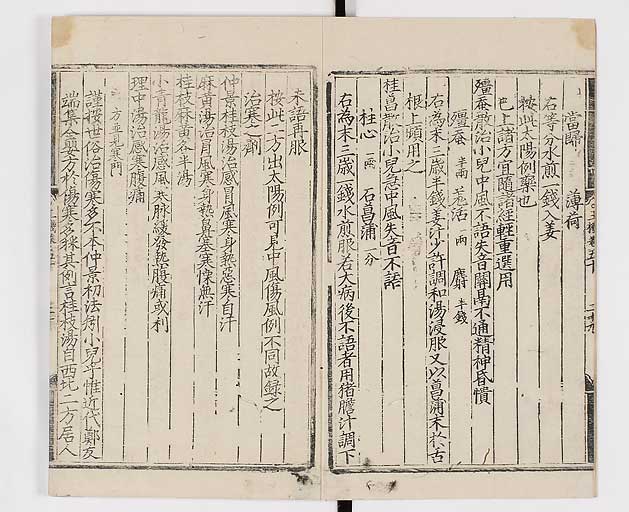 當歸 薄荷
右等分水煎一錢入姜
按此太陽例藥也
已上諸方宜隨諸經輕重選用
殭蚕散治小兒中風不語失音關鬲不通精神昏憒
殭蚕 半兩 羌活 一兩 麝 半錢
右為末三歲半錢姜汁少許調和湯浸服又以菖蒲末於舌
根上頻用之
桂菖散治小兒急中風失音不語
桂心 一兩 石菖蒲 一分
右為末三歲一錢水煎服若大病後不語者用猪膽汁調下
未語再服
按此二方出太陽例可見中風傷風例不同故録之
治寒之劑
仲景桂枝湯治感冒風寒身熱惡寒自汗
麻黄湯治冒風寒身熱鼻塞寒慄無汗
桂枝麻黄各半湯
小青龍湯治感風寒脉緩發熱腹痛或利
理中湯治感寒腹痛
方並見寒門
謹按世俗治傷寒多不本仲景初法矧小兒乎惟近代鄭友
端集全嬰方於傷寒多採其例言桂枝湯自西北二方居人